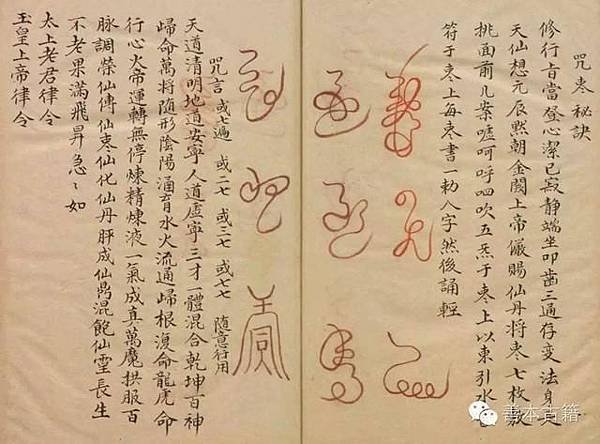 咒枣秘訣
修行旨當登心潔己寂静端坐叩齒三通存变法身
天仙想元辰黙朝金闕上帝儼賜仙丹将枣七枚敷
挑面前几案嘘呵呼呬吹五炁于枣上以東引水
符于枣上每枣書一勅八字然後誦輕
咒言 或七遍 或二七 或三七 或七七 随意行用
天道清明地道安寧人道虚寧三才一體混合乾坤百神
歸命萬将随形陰陽涌育水火流通歸根復命龍虎命
行心火帝運轉無停煉精煉液一氣成真萬魔拱服百
脉調榮仙傳仙枣仙化仙丹肝成仙鼎混飽仙霊長生
不老果滿飛昇急〻如
太上老君律令
玉皇上帝律令
善本古籍